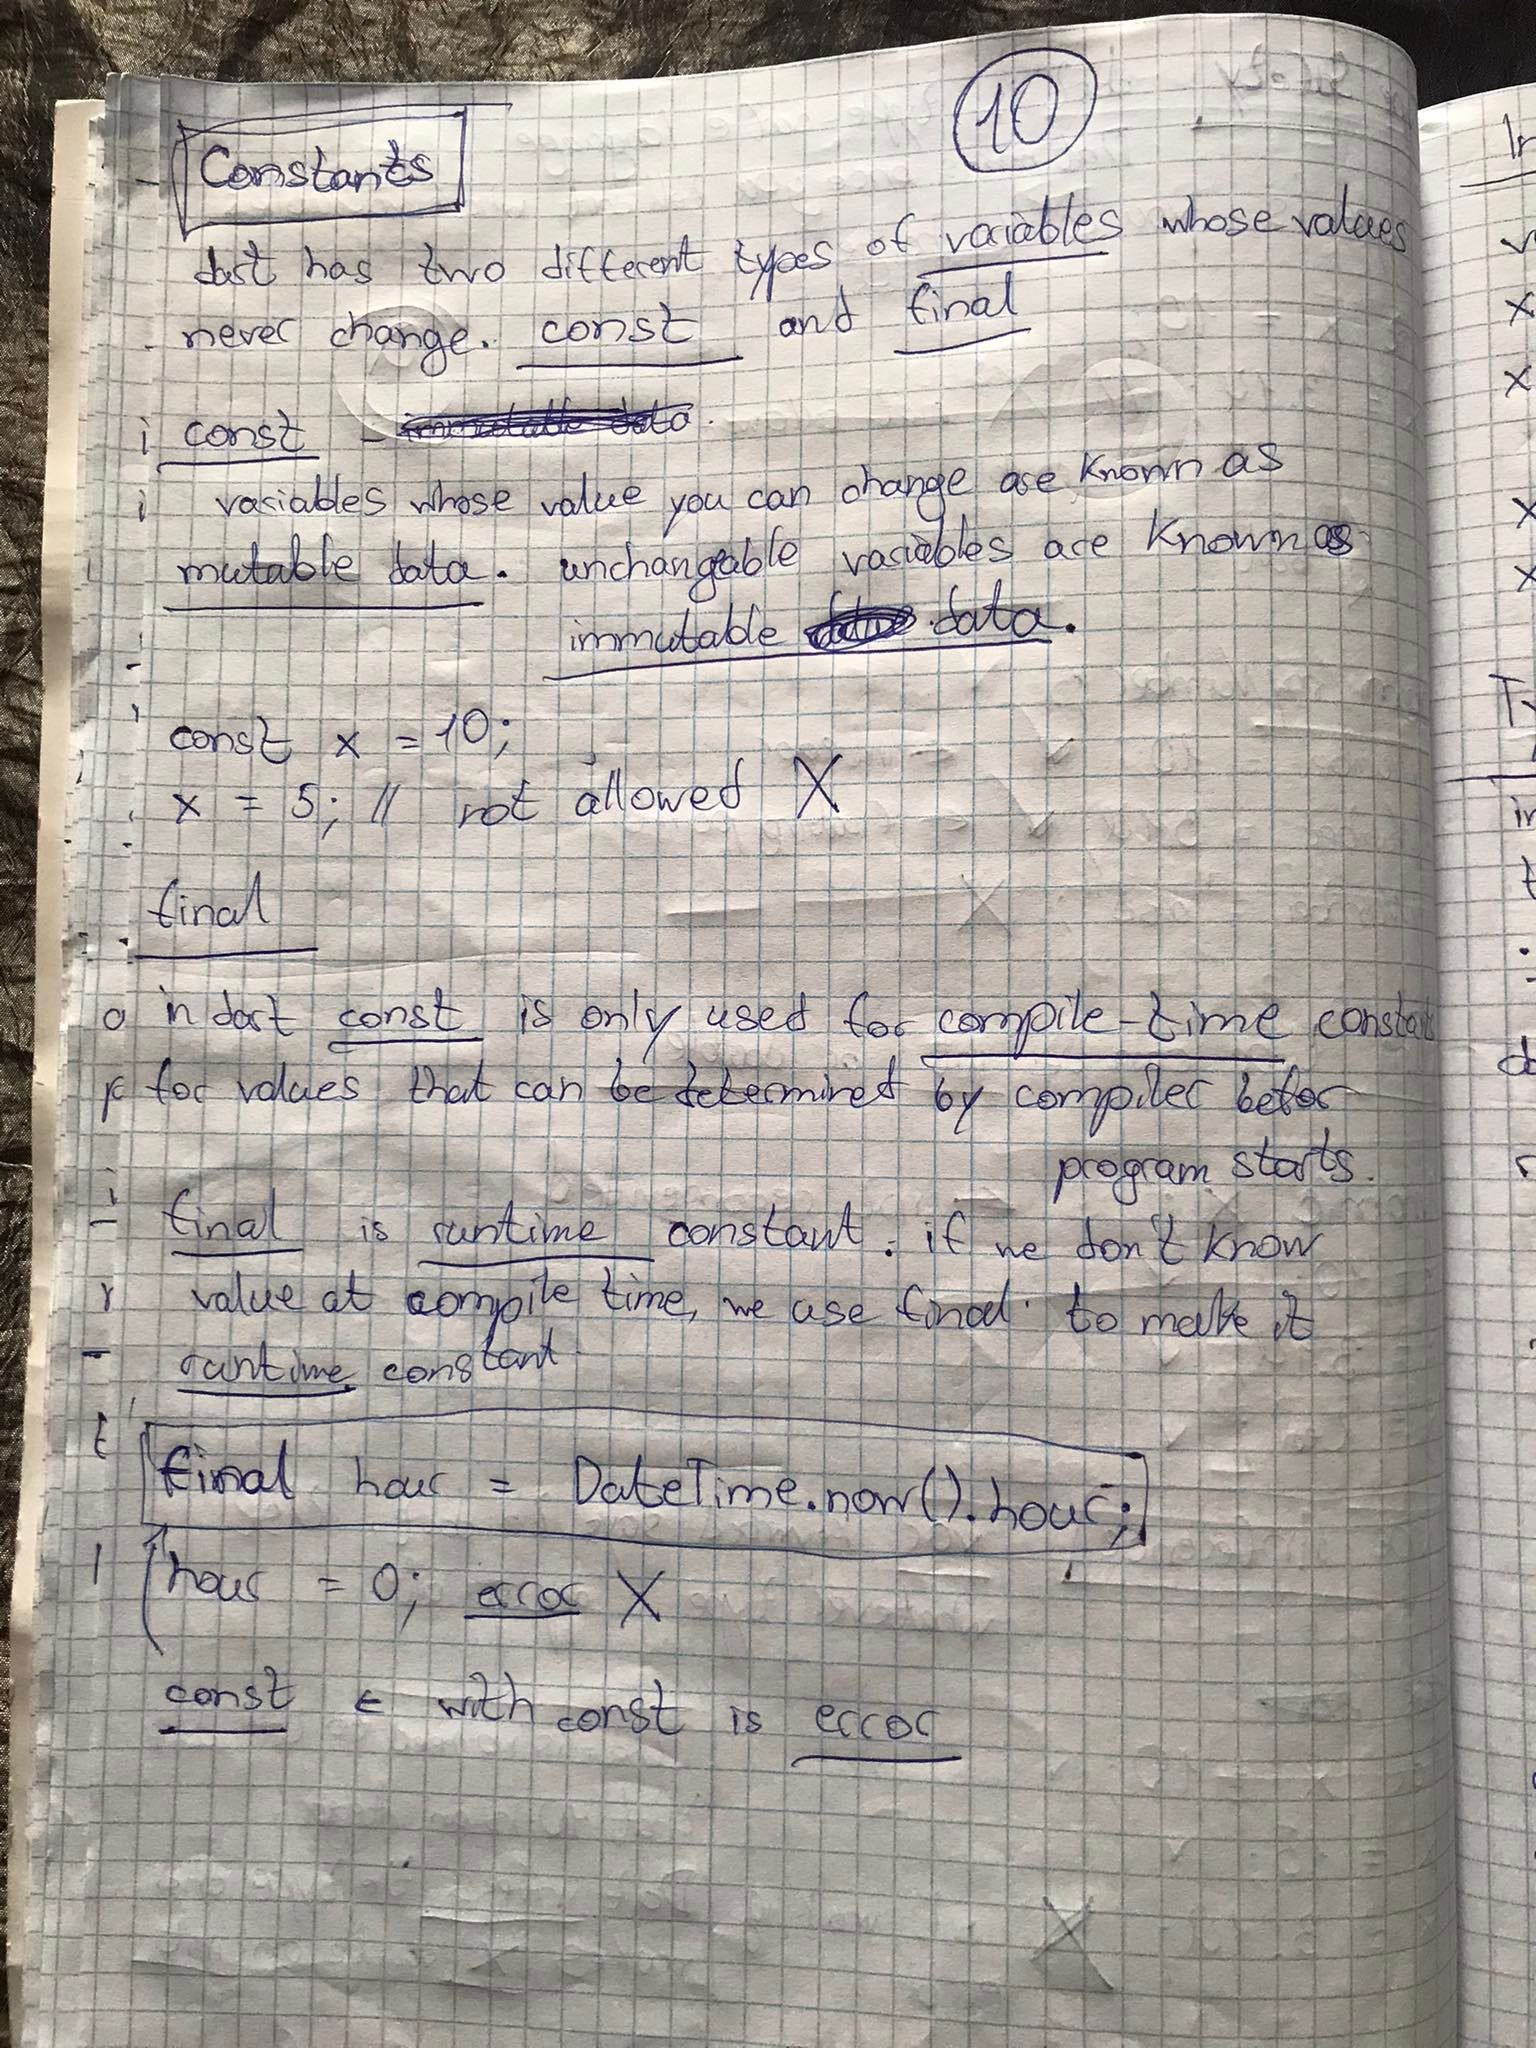 10
Constants
dart has two different types of variables whose values
never change. const and final
const -
variables whose value you can change are known as
mutable data. unchangeable variables are known as
immutable data.
const x = 10;
x = 5; // not allowed X
final
in dart const is only used for compile-time constant
for values that can be determined by compiler befor
program starts.
final is runtime constant. if we don't know
value at compile time, we use final to make it
runtime constant
final hour = DateTime.now().hour;
hour = 0; error X
const ← with const is error